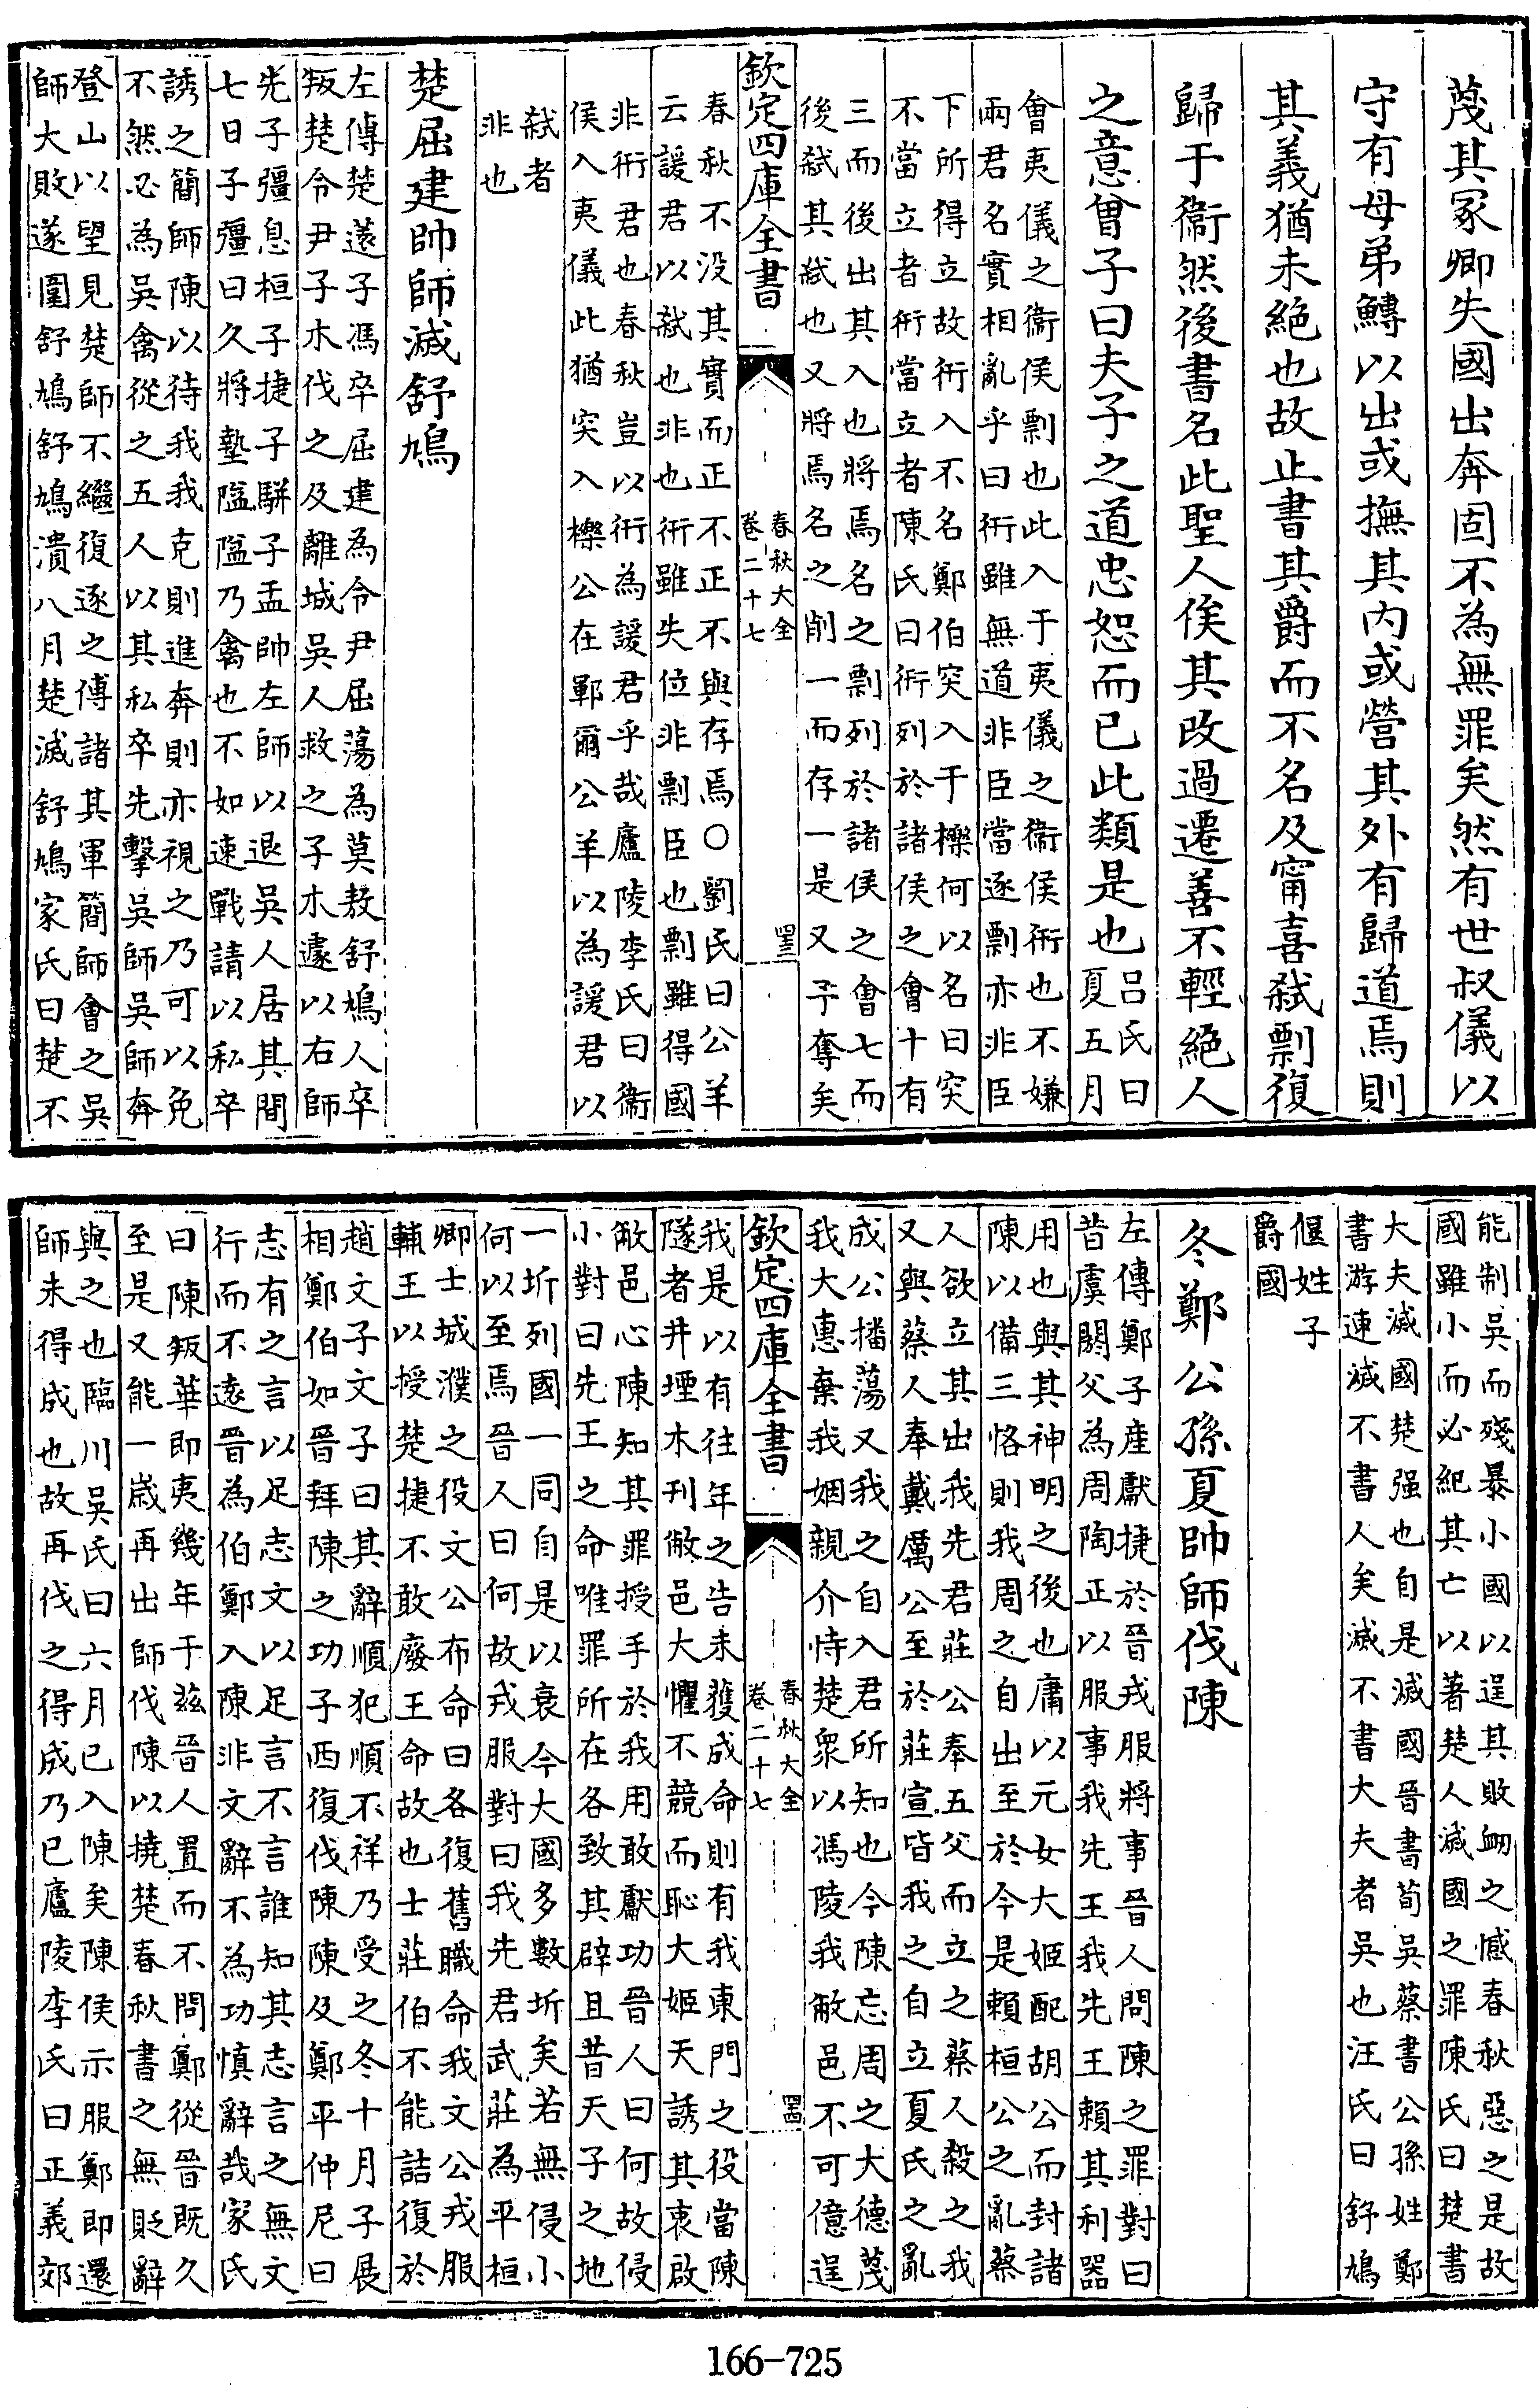 蔑其冢卿失國出奔固不為無罪矣然有世叔儀以
守有母弟鱄以出或撫其内或營其外有歸道焉則
其義猶未絶也故止書其爵而不名及甯喜弑剽復
歸于衞然後書名此聖人俟其改過遷善不輕絶人
之意曾子曰夫子之道忠恕而已此類是也
吕氏曰
夏五月
會夷儀之衞侯剽也此入于夷儀之衞侯衎也不嫌
兩君名實相亂乎曰衎雖無道非臣當逐剽亦非臣
下所得立故衎入不名鄭伯突入于櫟何以名曰突
不當立者衎當立者陳氏曰衎列於諸侯之會十有
三而後出其入也將焉名之剽列於諸侯之會七而
後弑其弑也又將焉名之削一而存一是又予奪矣
欽定四庫全書
春秋大全
卷二十七
四十三
春秋不没其實而正不正不與存焉○劉氏曰公羊
云諼君以弑也非也衎雖失位非剽臣也剽雖得國
非衎君也春秋豈以衎為諼君乎哉廬陵李氏曰衞
侯入夷儀此猶突入櫟公在鄆爾公羊以為諼君以
弑者
非也
楚屈建帥師滅舒鳩
左傳楚薳子馮卒屈建為令尹屈蕩為莫敖舒鳩人卒
叛楚令尹子木伐之及離城吳人救之子木遽以右師
先子彊息桓子捷子騈子盂帥左師以退吳人居其間
七日子彊曰久將墊隘隘乃禽也不如速戰請以私卒
誘之簡師陳以待我我克則進奔則亦視之乃可以免
不然必為吳禽從之五人以其私卒先擊吳師吳師奔
登山以望見楚師不繼復逐之傅諸其軍簡師會之吳
師大敗遂圍舒鳩舒鳩潰八月楚滅舒鳩家氏曰楚不
能制吳而殘暴小國以逞其敗衂之憾春秋惡之是故
國雖小而必紀其亡以著楚人滅國之罪陳氏曰楚書
大夫滅國楚强也自是滅國晉書荀吳蔡書公孫姓鄭
書游速滅不書人矣滅不書大夫者吳也汪氏曰舒鳩
偃姓子
爵國
冬鄭公孫夏帥師伐陳
左傳鄭子産獻捷於晉戎服將事晉人問陳之罪對曰
昔虞閼父為周陶正以服事我先王我先王賴其利器
用也與其神明之後也庸以元女大姬配胡公而封諸
陳以備三恪則我周之自出至於今是賴桓公之亂蔡
人欲立其出我先君莊公奉五父而立之蔡人殺之我
又與蔡人奉戴厲公至於莊宣皆我之自立夏氏之亂
成公播蕩又我之自入君所知也今陳忘周之大德蔑
我大惠棄我姻親介恃楚衆以馮陵我敝邑不可億逞
欽定四庫全書
春秋大全
卷二十七
四十四
我是以有往年之告未獲成命則有我東門之役當陳
隧者井堙木刋敝邑大懼不競而恥大姬天誘其衷啟
敝邑心陳知其罪授手於我用敢獻功晉人曰何故侵
小對曰先王之命唯罪所在各致其辟且昔天子之地
一圻列國一同自是以衰今大國多數圻矣若無侵小
何以至焉晉人曰何故戎服對曰我先君武莊為平桓
卿士城濮之役文公布命曰各復舊職命我文公戎服
輔王以授楚捷不敢廢王命故也士莊伯不能詰復於
趙文子文子曰其辭順犯順不祥乃受之冬十月子展
相鄭伯如晉拜陳之功子西復伐陳陳及鄭平仲尼曰
志有之言以足志文以足言不言誰知其志言之無文
行而不遠晉為伯鄭入陳非文辭不為功慎辭哉家氏
曰陳叛華即夷幾年于兹晉人置而不問鄭從晉既久
至是又能一歲再出師伐陳以撓楚春秋書之無貶辭
與之也臨川吳氏曰六月已入陳矣陳侯示服鄭即還
師未得成也故再伐之得成乃已廬陵李氏曰正義郊
166-725